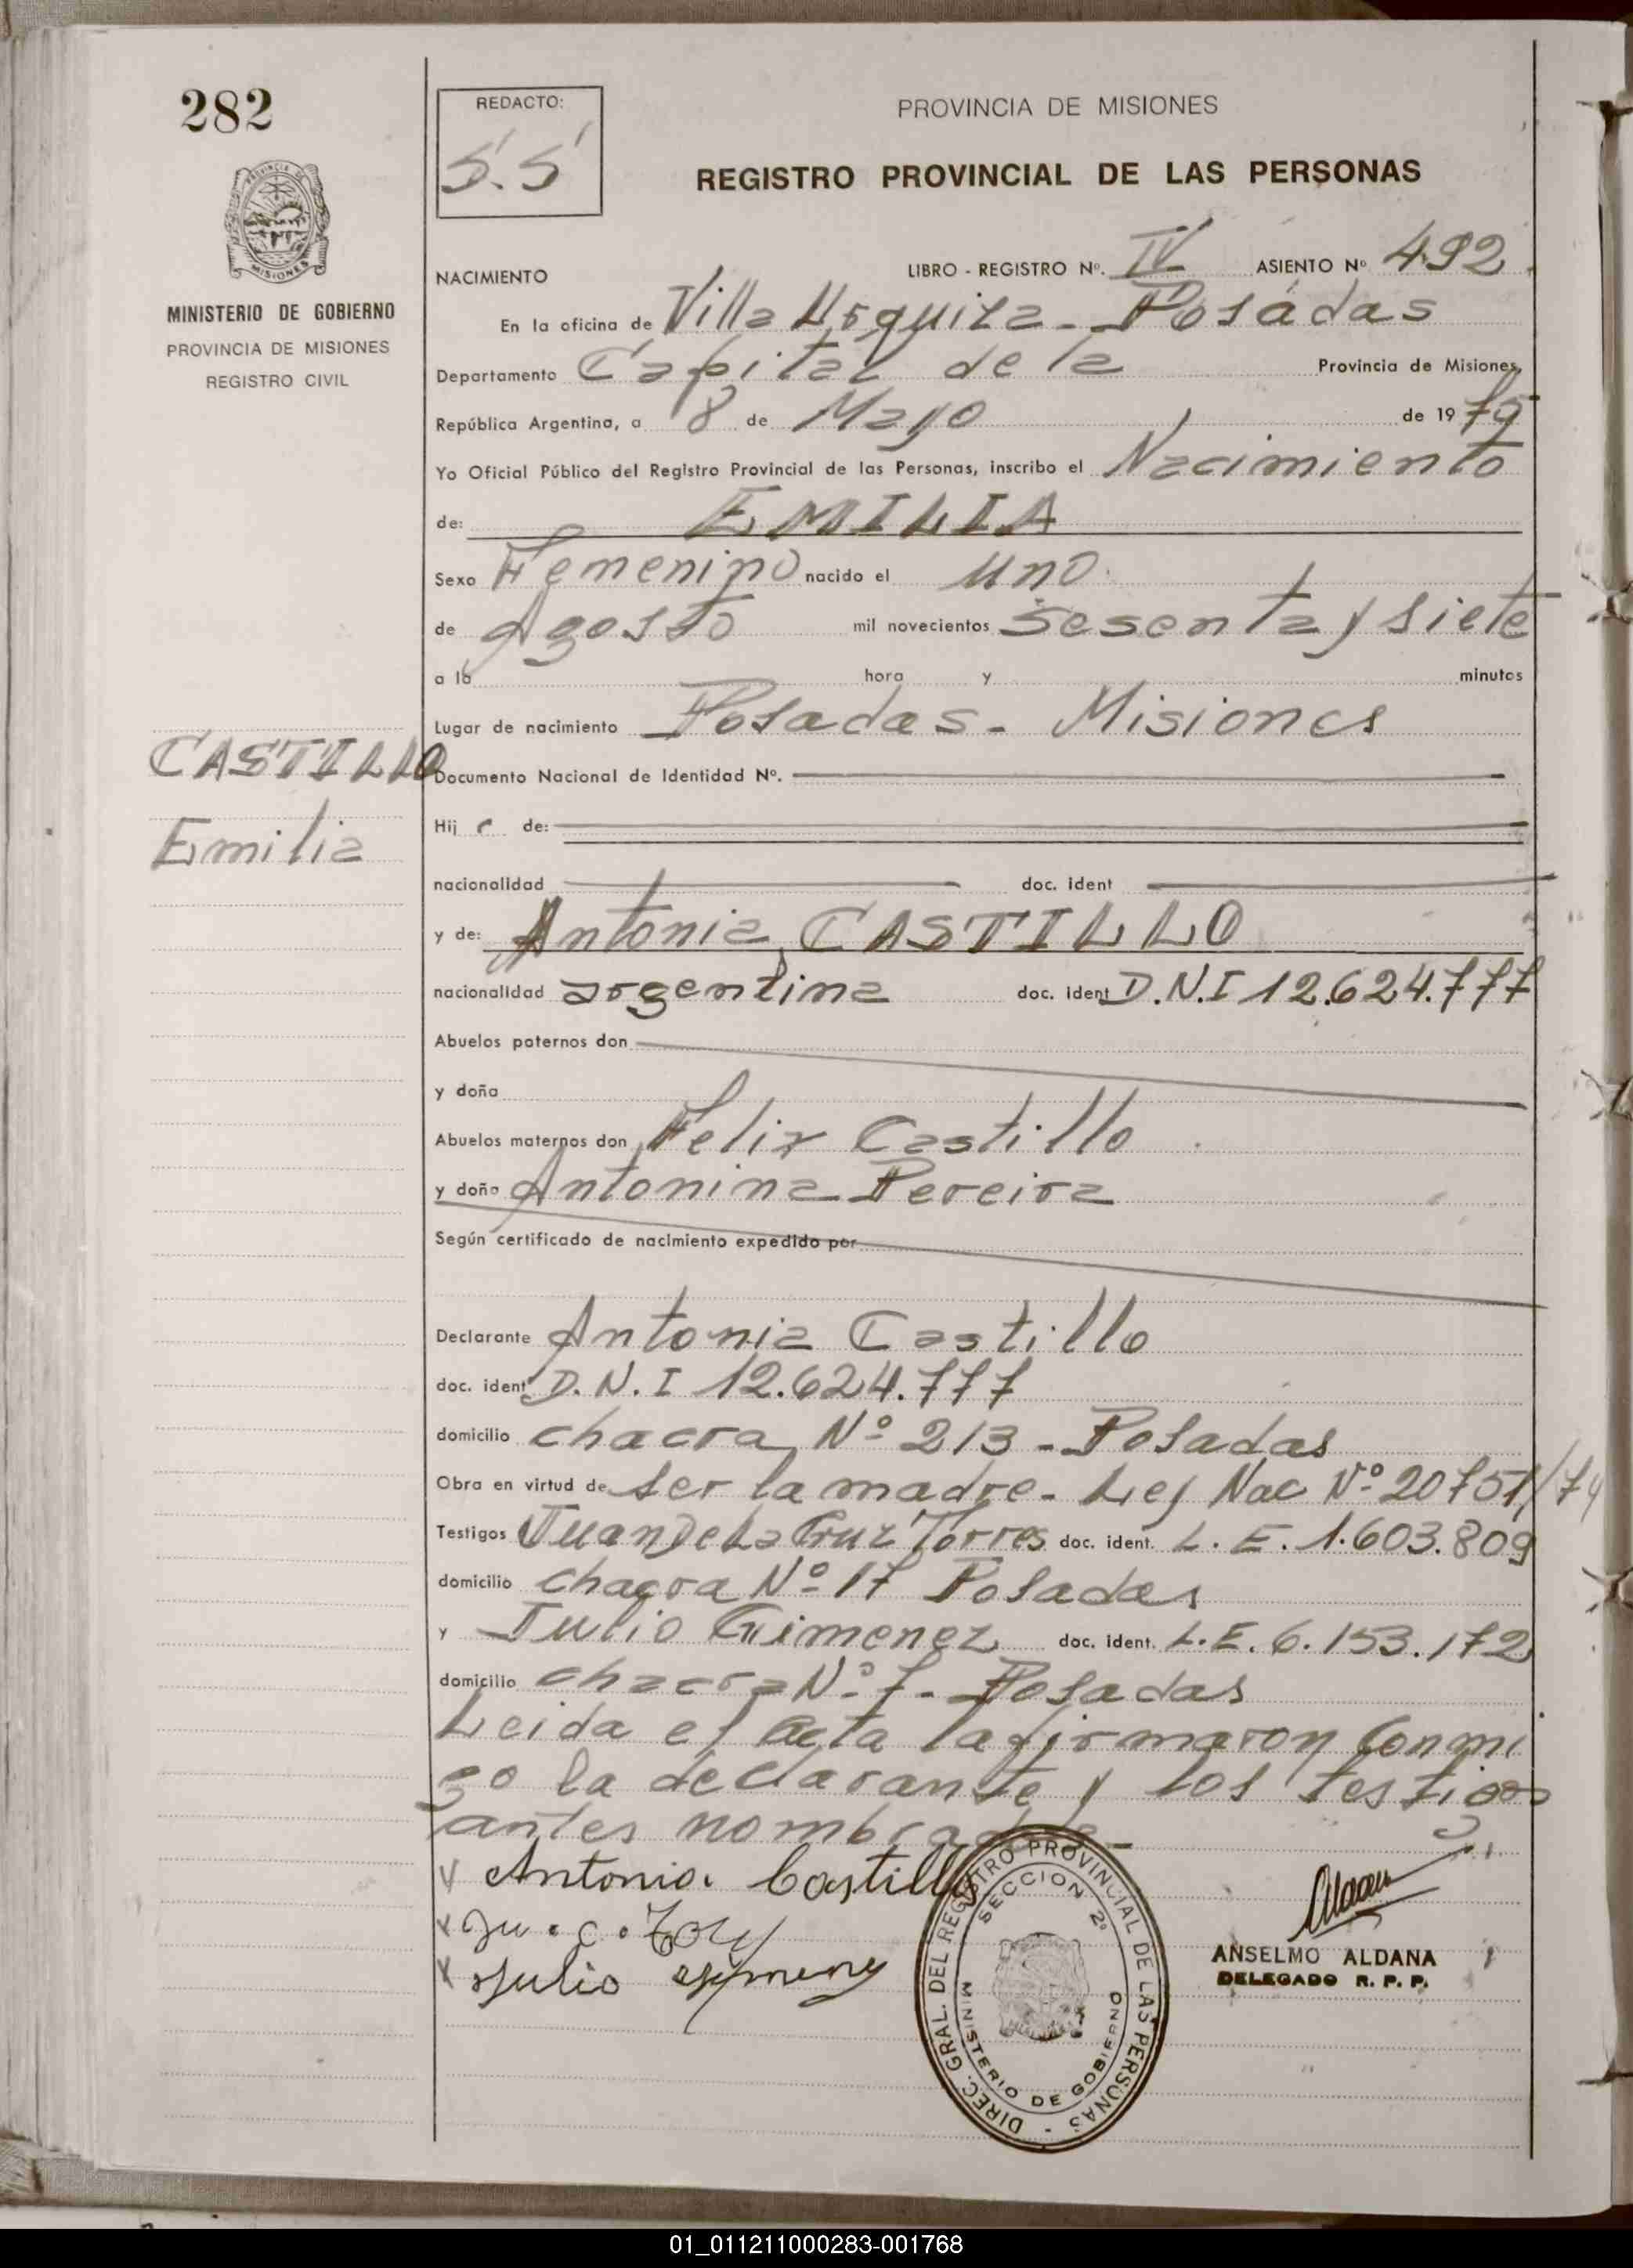 282
REDACTO:
S.S
PROVINCIA DE MISIONES
REGISTRO PROVINCIAL DE LAS PERSONAS
MISIONES
MINISTERIO DE GOBIERNO
PROVINCIA DE MISIONES
REGISTRO CIVIL
NACIMIENTO LIBRO - REGISTRO Nº. IV ASIENTO Nº 492
En la oficina de Villa Urquiza - Posadas
Departamento Capital de la Provincia de Misiones,
República Argentina, a 8 de Mayo de 1975
Yo Oficial Público del Registro Provincial de las Personas, inscribo el Nacimiento
de: EMILIA
Sexo Femenino nacido el uno
de Agosto mil novecientos sesenta y siete
a la hora y minutos
Lugar de nacimiento Posadas - Misiones
CASTILLO
Emilia
Documento Nacional de Identidad Nº.
Hij de:
nacionalidad doc. ident
y de: Antonia CASTILLO
nacionalidad argentina doc. ident D.N.I 12.624.777
Abuelos paternos don
y doña
Abuelos maternos don Felix Castillo
y doña Antonina Pereira
Según certificado de nacimiento expedido por
Declarante Antonia Castillo
doc. ident D.N.I 12.624.777
domicilio chacra Nº 213 - Posadas
Obra en virtud de ser la madre - Ley Nac Nº 20751/74
Testigos Juan De La Cruz Torres doc. ident. L.E. 1.603.809
domicilio chacra Nº 17 Posadas
y Julio Gimenez doc. ident. L.E. 6.153.172
domicilio chacra Nº 7 - Posadas
Leida el acta la firmaron conmi
go la declarante y los testigos
antes nombrados -
Antonia Castillo
Julio
DIREC. GRAL. DEL REGISTRO PROVINCIAL DE LAS PERSONAS -
SECCION 2º
MINISTERIO DE GOBIERNO
ANSELMO ALDANA
DELEGADO R. P. P.
01_011211000283-001768